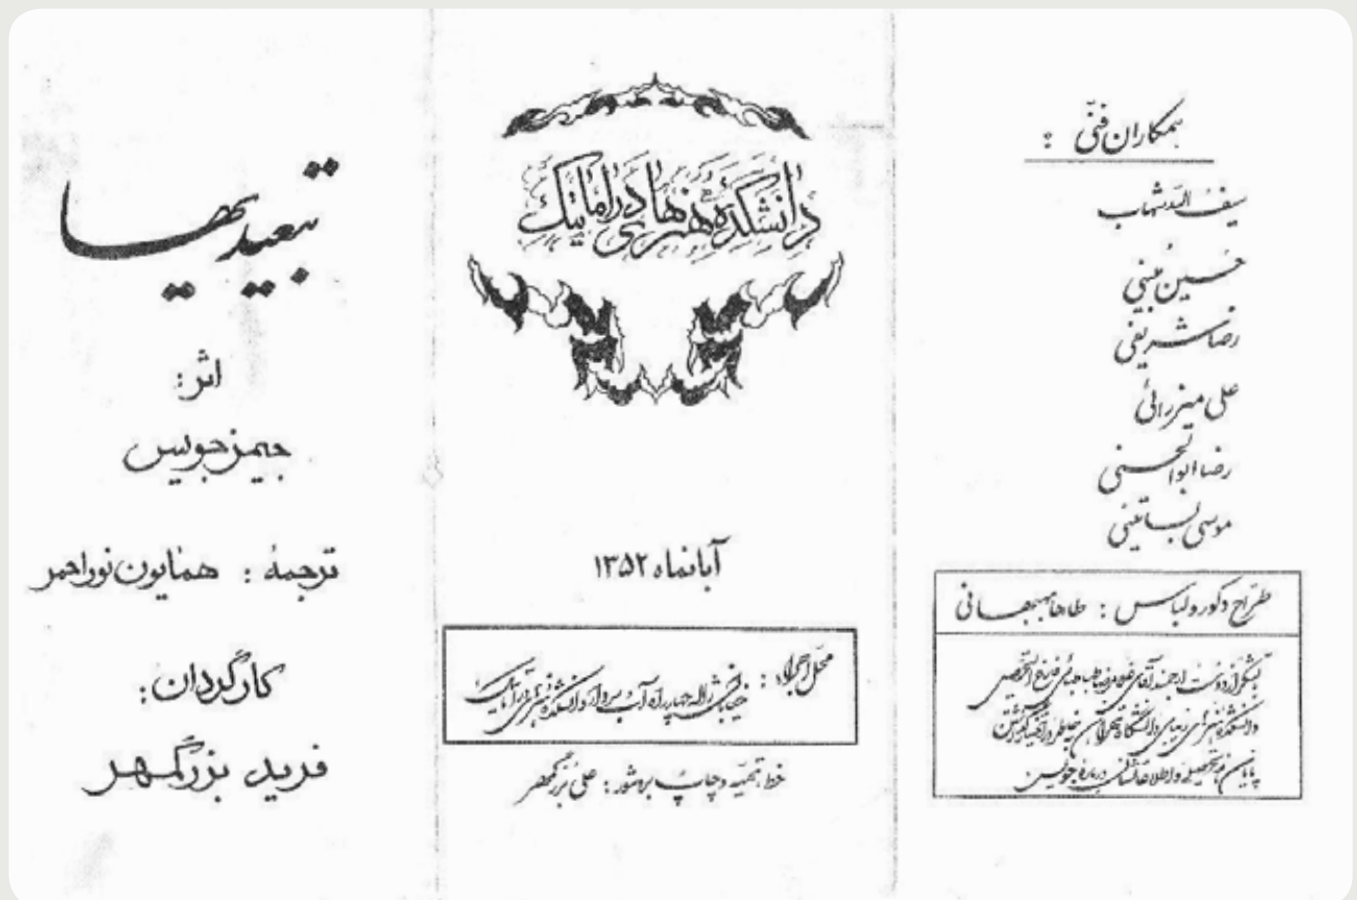 همکاران فنّی :
سیف الله شهاب
حسین مبینی
رضا شریفی
علی میزرائی
رضا ابوالحسنی
موسی بساتینی
طرّاح دکور و لباس : طاها بهبهانی
تشکر از دوست ارجمند آقای غلامرضا طباطبائی فارغ التحصیل
دانشکده هنرهای زیبای دانشگاه تهران بخاطر در اختیار گذاشتن
پایان نامه تحصیلی و اطلاعاتشان درباره جویس
دانشکدهٔ هنرهای دراماتیک
آبانماه ۱۳۵۲
محلّ اجراء :
خیابان ژاله چهارراه آب سردار دانشکده هنرهای دراماتیک
خط، تهیّه و چاپ بروشور : علی بزرگمهر
تبعیدیها
اثر :
جیمز جویس
ترجمهٔ : همایون نوراحمر
کارگردان :
فرید بزرگمهر